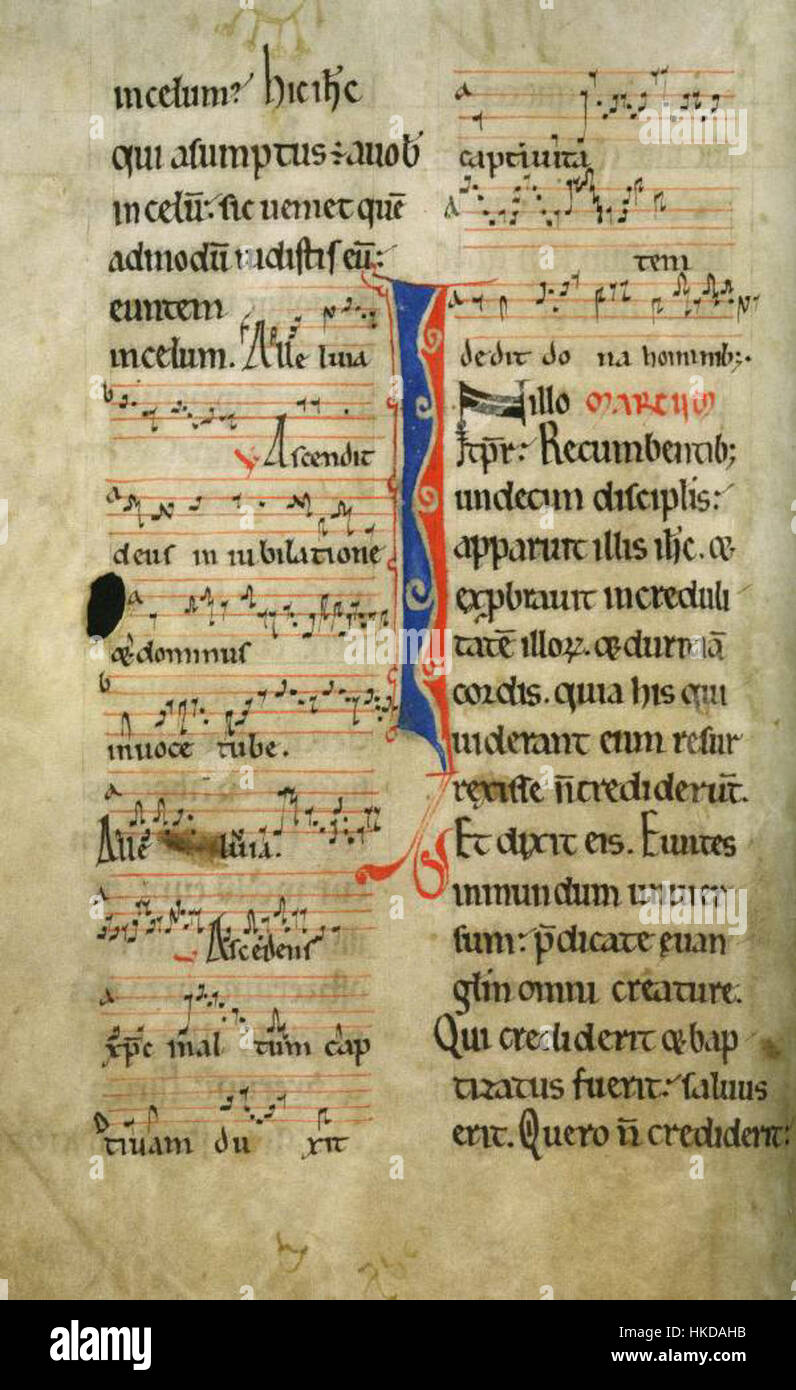 incelum? hic ih̄c
qui asumptus ÷ auob̄
in celū: sic ueniet quē
admodū uidistis eū:
euntem
incelum. Alle luia
Ascendit
deus in iubilatione
& dominus
inuoce tube.
Alle luia.
Ascēdens
xp̄c in al tum cap
tiuam du xit
captiuita
tem
dedit do na hominib;.
In illo
It̄pr: Recumbentib;
undecim discipłis:
apparuit illis ih̄c. &
exp̄brauit increduli
tatē illoꝝ. & duritiā
cordis. quia his qui
uiderant eum resur
rexisse n̄ crediderūt.
Et dixit eis. Euntes
inmundum uniuer
sum: p̄dicate euan
gliū omni creature.
Qui crediderit & bap
tizatus fuerit: saluus
erit. Quero n̄ crediderit:
alamy stock photo
HKDAHB
www.alamy.com